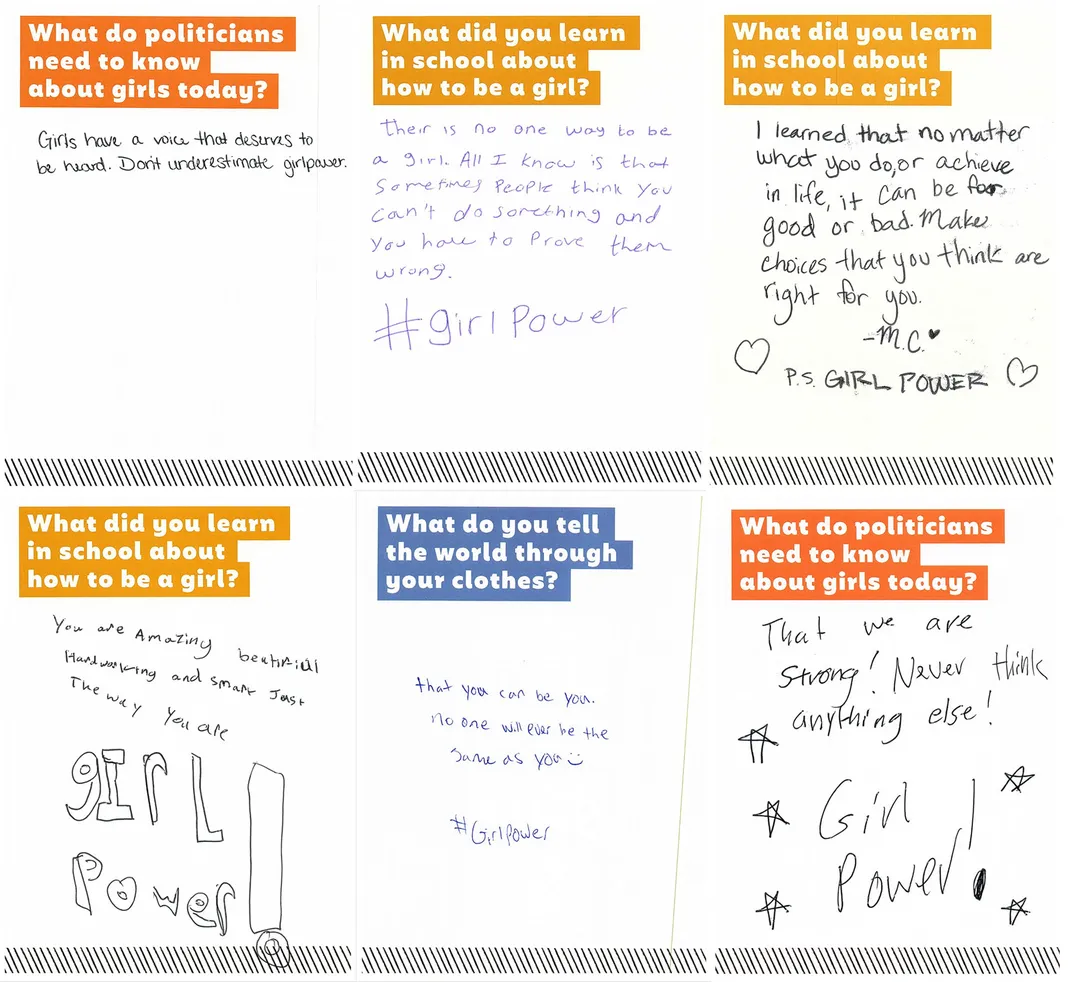 What do politicians
need to know
about girls today?
Girls have a voice that deserves to
be heard. Don't underestimate girlpower.
What did you learn
in school about
how to be a girl?
Their is no one way to be
a girl. All I know is that
Sometimes People think you
can't do something and
you have to Prove them
wrong.
#girlPower
What did you learn
in school about
how to be a girl?
I learned that no matter
what you do, or achieve
in life, it can be for
good or bad. Make
choices that you think are
right for you.
-M.C.♥
P.S. GIRL POWER
What did you learn
in school about
how to be a girl?
You are Amazing beautiful
Hardworking and smart Just
The way You are
gIrL
Power!
What do you tell
the world through
your clothes?
that you can be you.
no one will ever be the
same as you :)
#GirlPower
What do politicians
need to know
about girls today?
That we are
strong! Never think
anything else!
Girl
Power!